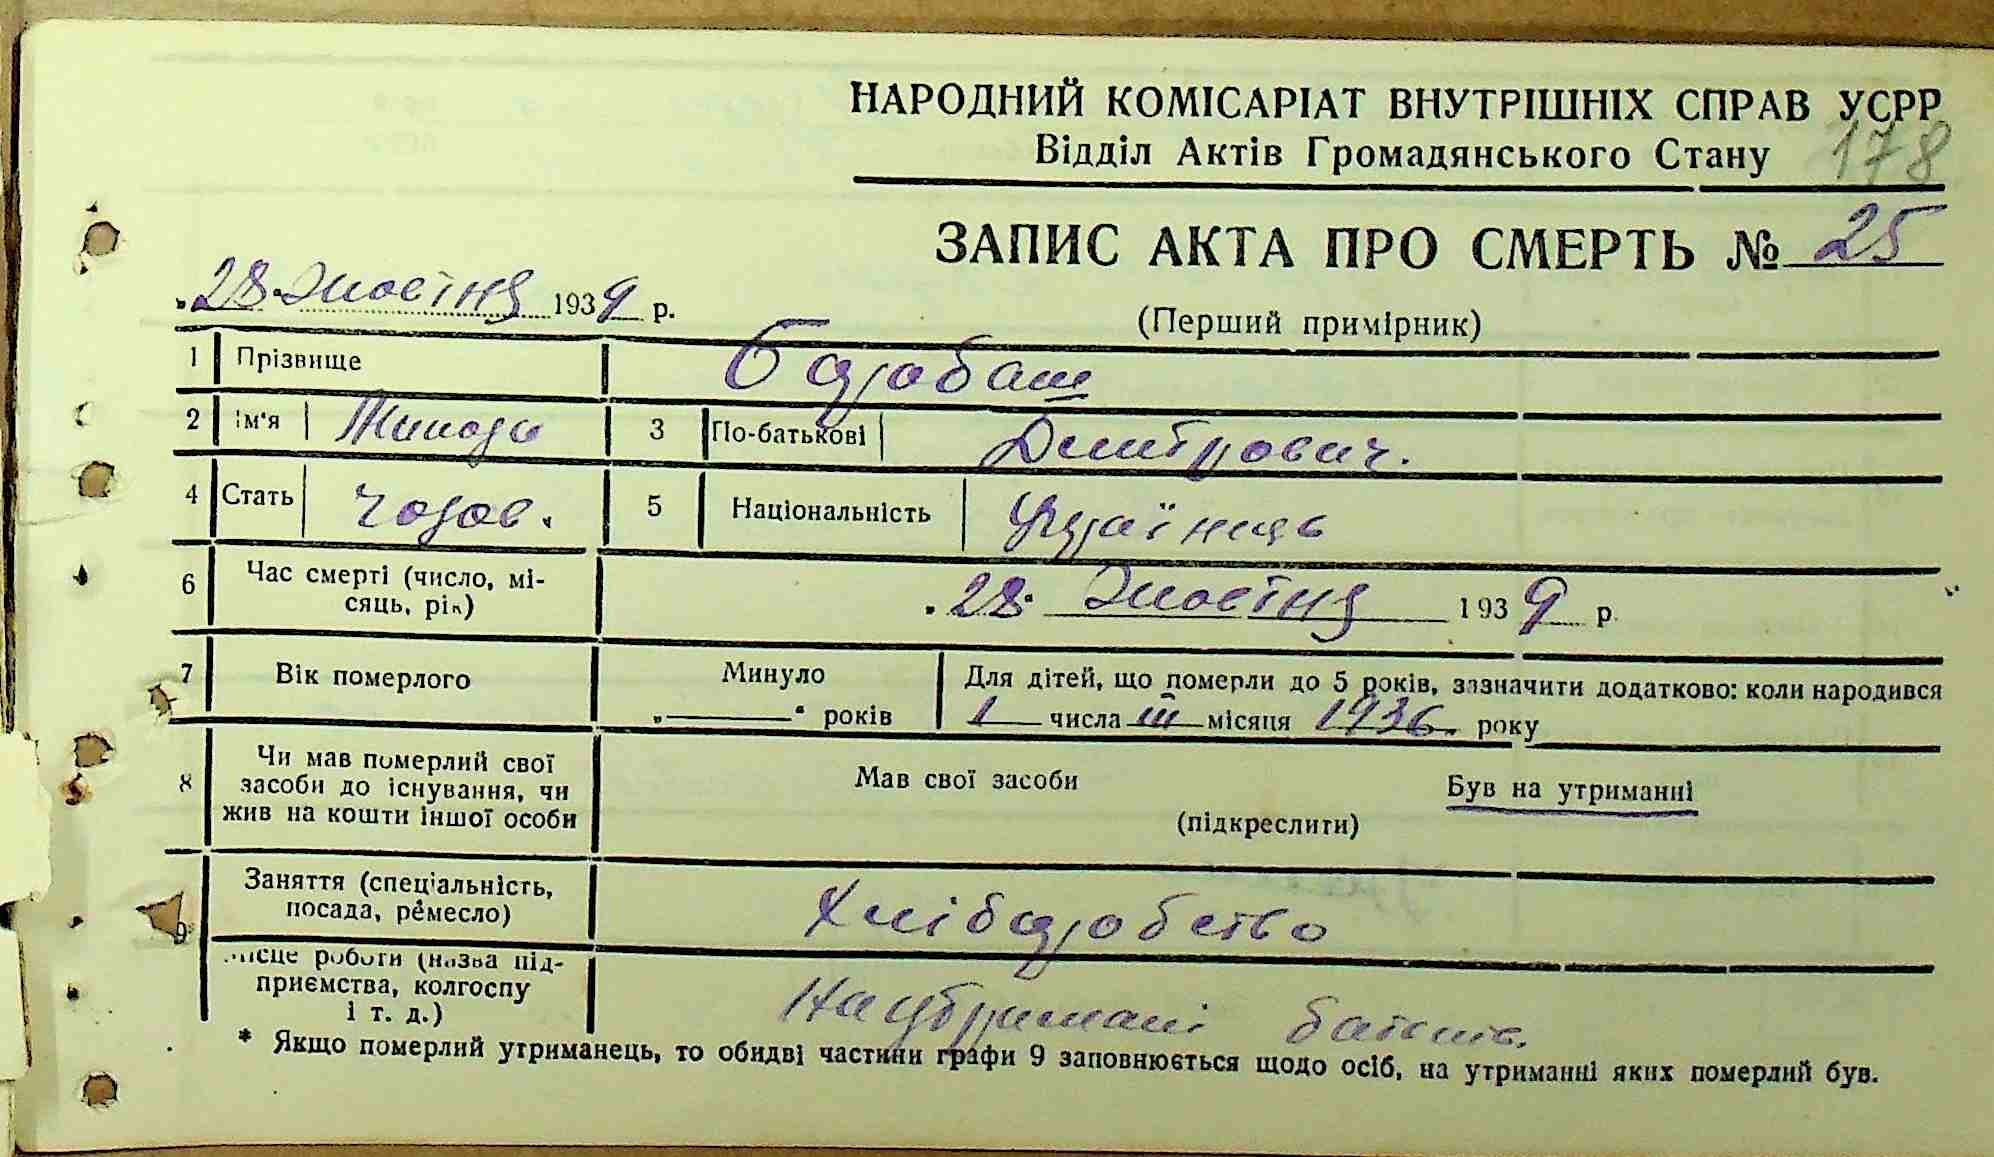 НАРОДНИЙ КОМІСАРІАТ ВНУТРІШНІХ СПРАВ УСРР
Відділ Актів Громадянського Стану 178
ЗАПИС АКТА ПРО СМЕРТЬ № 25
„28“ Жовтня 1939 р.
(Перший примірник)
1 Прізвище
2 Ім'я Микола 3 По-батькові Дмитрович.
4 Стать чолов. 5 Національність Українець
6 Час смерті (число, мі-
сяць, рік) „28“ Жовтня 1939 р.
7 Вік померлого Минуло Для дітей, що померли до 5 років, зазначити додатково: коли народився
„—“ років 1 числа III місяця 1936. року
8 Чи мав померлий свої
засоби до існування, чи
жив на кошти іншої особи Мав свої засоби Був на утриманні
(підкреслити)
9 Заняття (спеціальність,
посада, ремесло) Хліборобство
Місце роботи (назва під-
приємства, колгоспу
і т. д.) На утриманні батьків.
* Якщо померлий утриманець, то обидві частини графи 9 заповнюється щодо осіб, на утриманні яких померлий був.